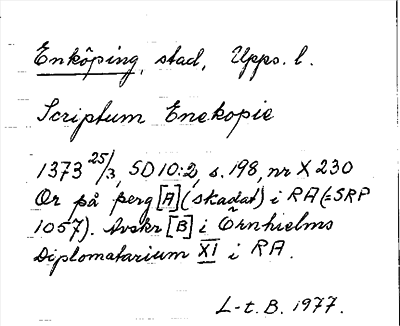 Enköping, stad, Upps. l.
Scriptum Enekopie
1373 25/3, SD 10:2, s. 198, nr X 230
Or på perg [A] (skadat) i RA (=SRP
1057). Avskr [B] i Örnhielms
Diplomatarium XI i RA.
L-t. B. 1977.